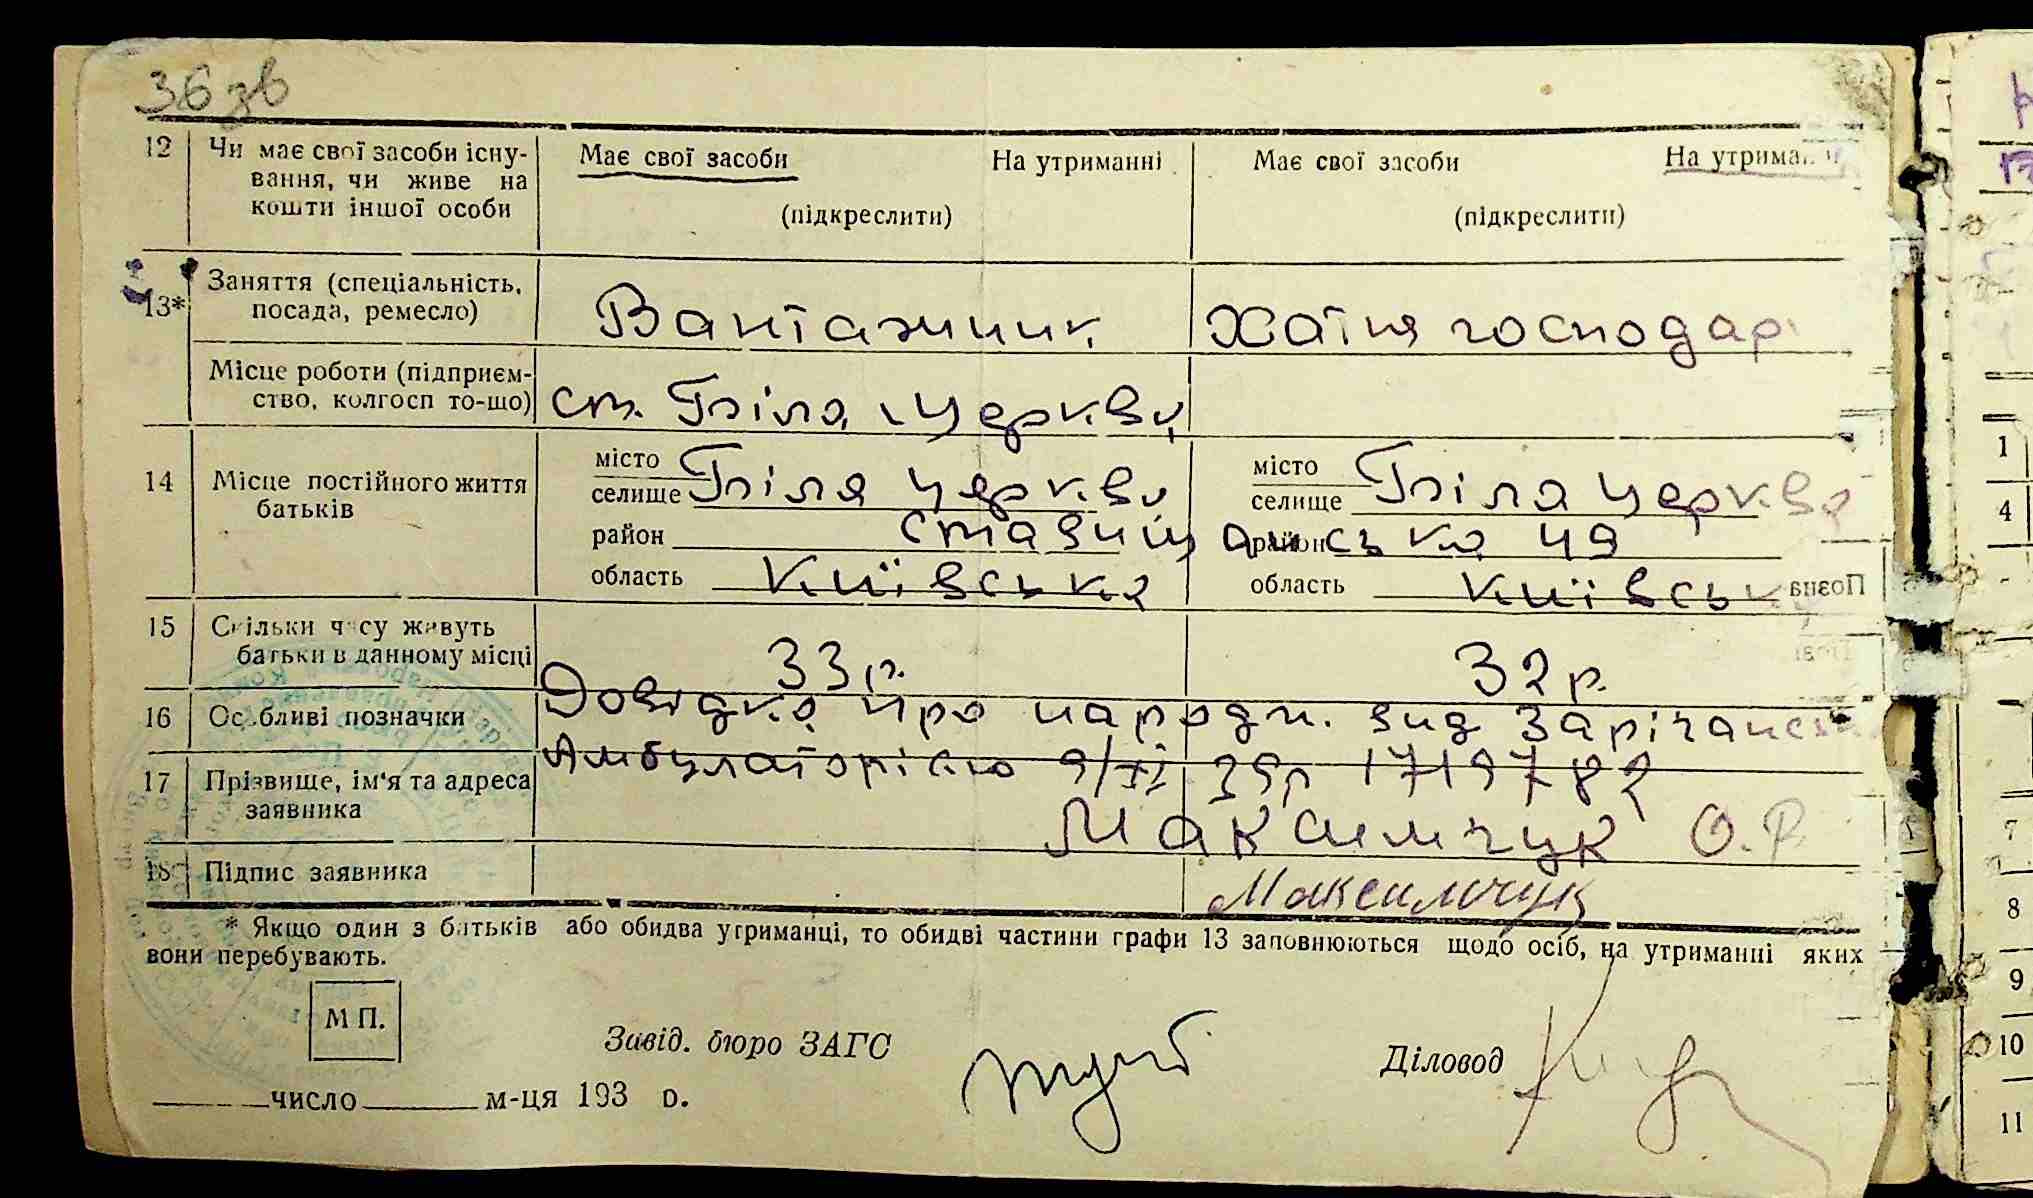 36 зв
12 Чи має свої засоби існу- Має свої засоби На утриманні Має свої засоби На утриман
вання, чи живе на
кошти іншої особи (підкреслити) (підкреслити)
13* Заняття (спеціальність, посада, ремесло) Вантажник Хатня господар
Місце роботи (підприєм-
ство, колгосп то-що) ст. Біла Церква
14 Місце постійного життя батьків
місто Біла Церкві місто Біла Церква
селище селище
район Ставищанська 49 район
область Київська область Київськ
15 Скільки часу живуть
батьки в данному місці 33 р. 32 р.
16 Особливі позначки Довідка про народж. вид Зарічанськ
Амбулаторією 9/XI 35р
17 Прізвище, ім'я та адреса
заявника Максимчук О.Р
18 Підпис заявника Максимчук
* Якщо один з батьків або обидва утриманці, то обидві частини графи 13 заповнюються щодо осіб, на утриманні яких
вони перебувають.
М П.
Завід. бюро ЗАГС Діловод
число м-ця 193 р.
1
4
7
8
9
10
11